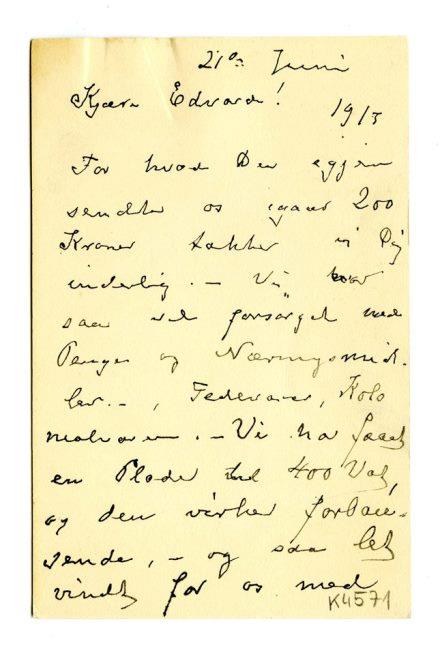 21de Juni
Kjære Edvard!
1913
For hvad Du igjen
sendte os igaar 200
Kroner takker vi Dig
inderlig. – Vi
saa vel forsørget med
Penge og Næringsmid-
ler. – , Fedevarer, Kolo
nialvarer. – Vi ha faaet
en Plade til 400 Vat,
og den virker forbau-
sende, – og saa let
vindt for os med
K4571